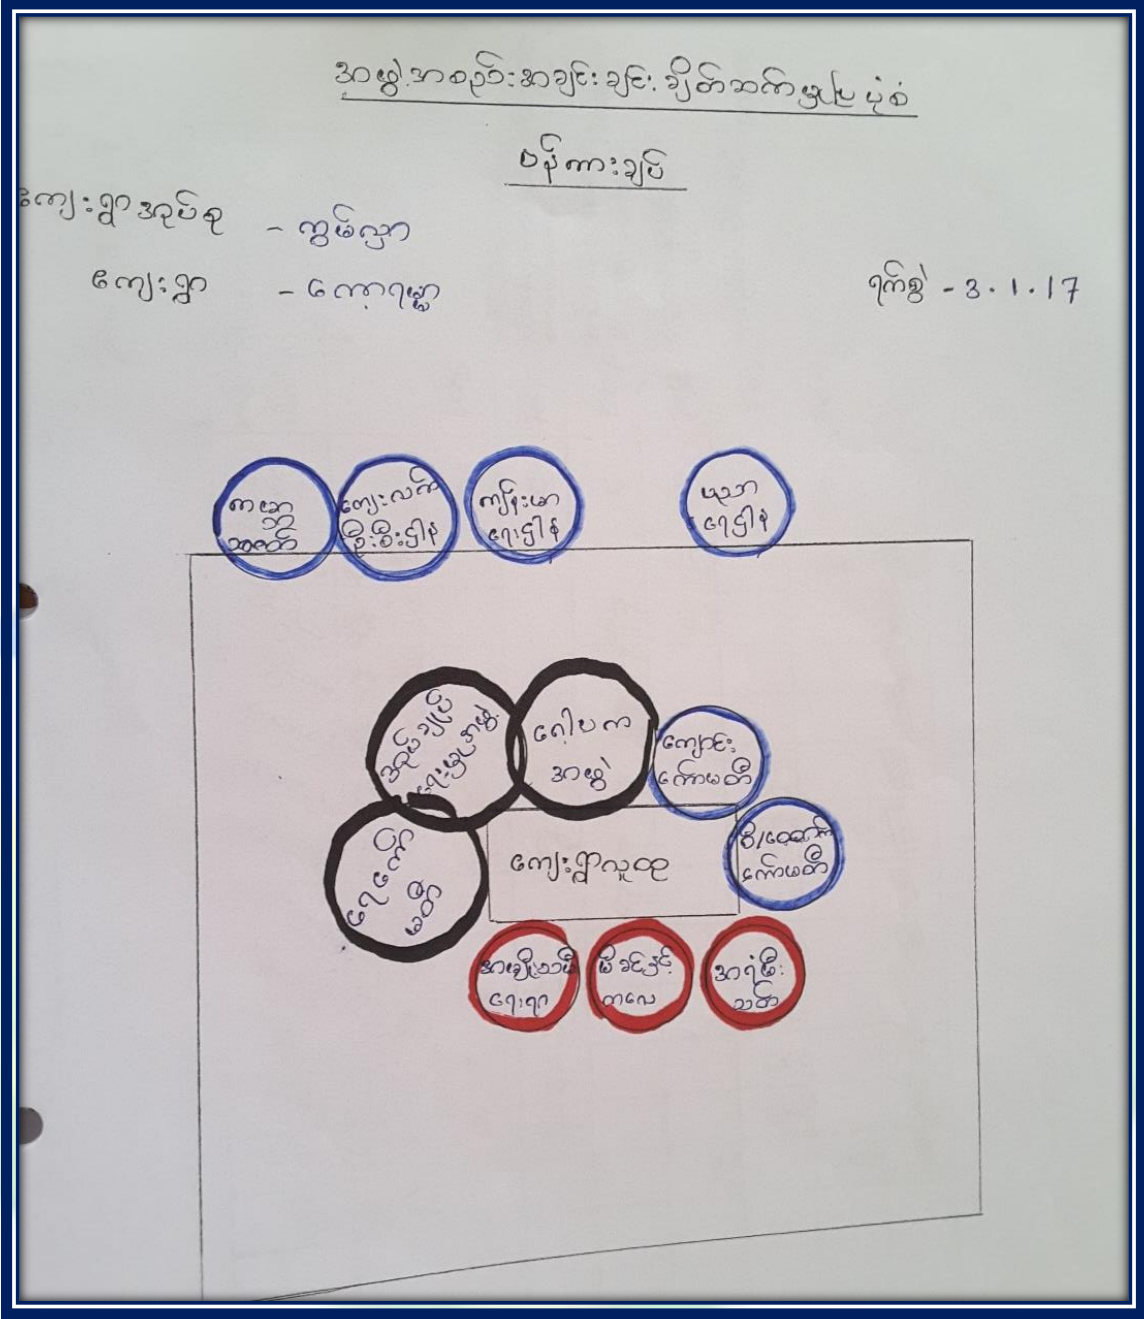 အဖွဲ့အစည်းအချင်းချင်းချိတ်ဆက်မှုပြပုံစံ
ဗန်ကားချပ်
ကျေးရွာအုပ်စု - ကွမ်လှာ
ကျေးရွာ -
ရက်စွဲ - 3.1.17
ကမ္ဘာ့
ကျေးလက်
ဦးစီးဌာန
ကျန်းမာ
ရေးဌာန
ပညာ
ရေးဌာန
အုပ်ချုပ်
ရေးမှူးအဖွဲ့
ဂေါပက
အဖွဲ့
ကျောင်း
ကော်မတီ
ကော်မတီ
ရေကော်
မတီ
ကျေးရွာလူထု
အမျိုးသမီး
ရေးရာ
မိခင်နှင့်
ကလေး
အရံမီး
သတ်